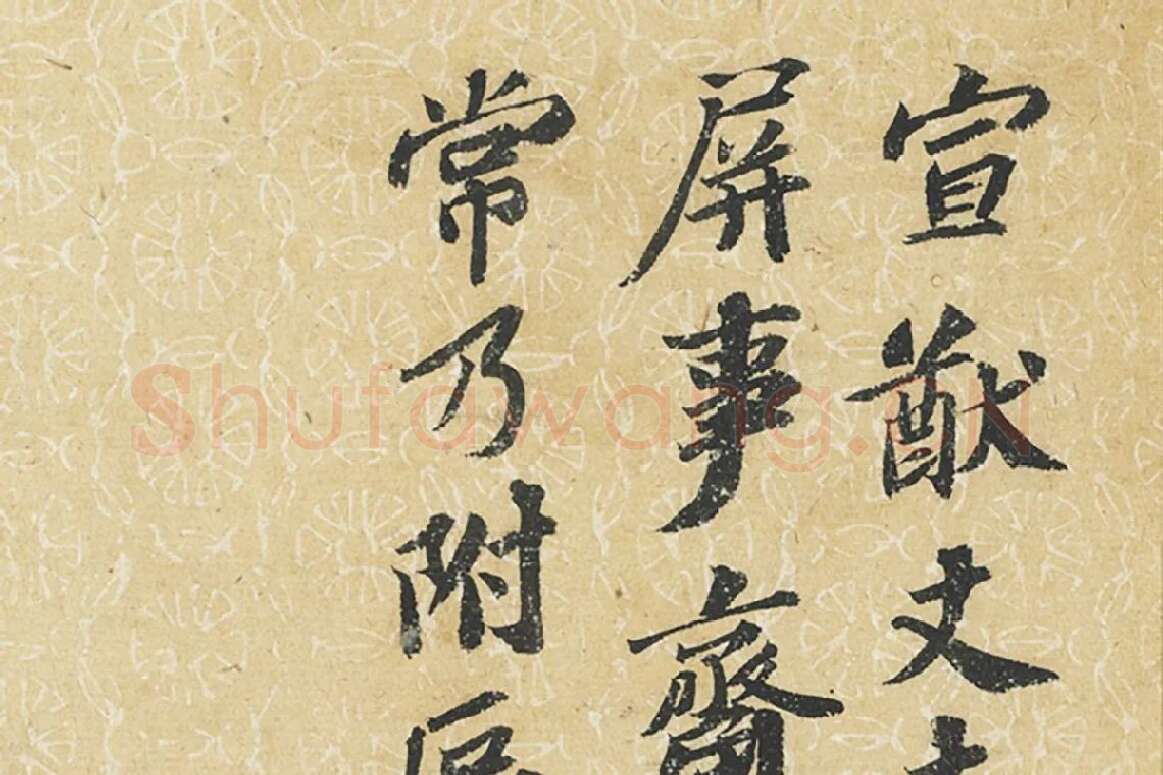 宣猷丈
屏事
常乃附
Shufawang.CN